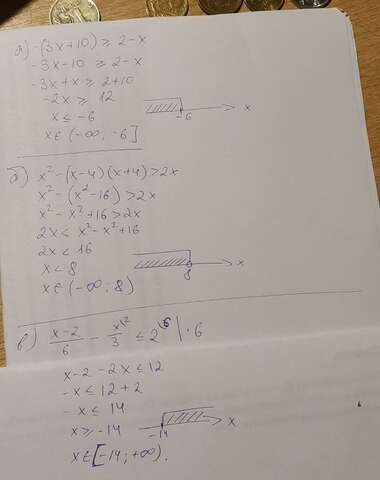 а) -(3x+10) ≥ 2-x
-3x-10 ≥ 2-x
-3x+x ≥ 2+10
-2x ≥ 12
x ≤ -6
-6 x
x ∈ (-∞; -6]
б) x²-(x-4)(x+4)>2x
x²-(x²-16)>2x
x²-x²+16>2x
2x< x²-x²+16
2x < 16
x<8
8 x
x ∈ (-∞; 8)
в) (x-2)/6 - x\²/3 ≤ 2\⁶ | ·6
x-2-2x ≤ 12
-x ≤ 12+2
-x ≤ 14
x ≥ -14
-14 x
x ∈ [-14; +∞).